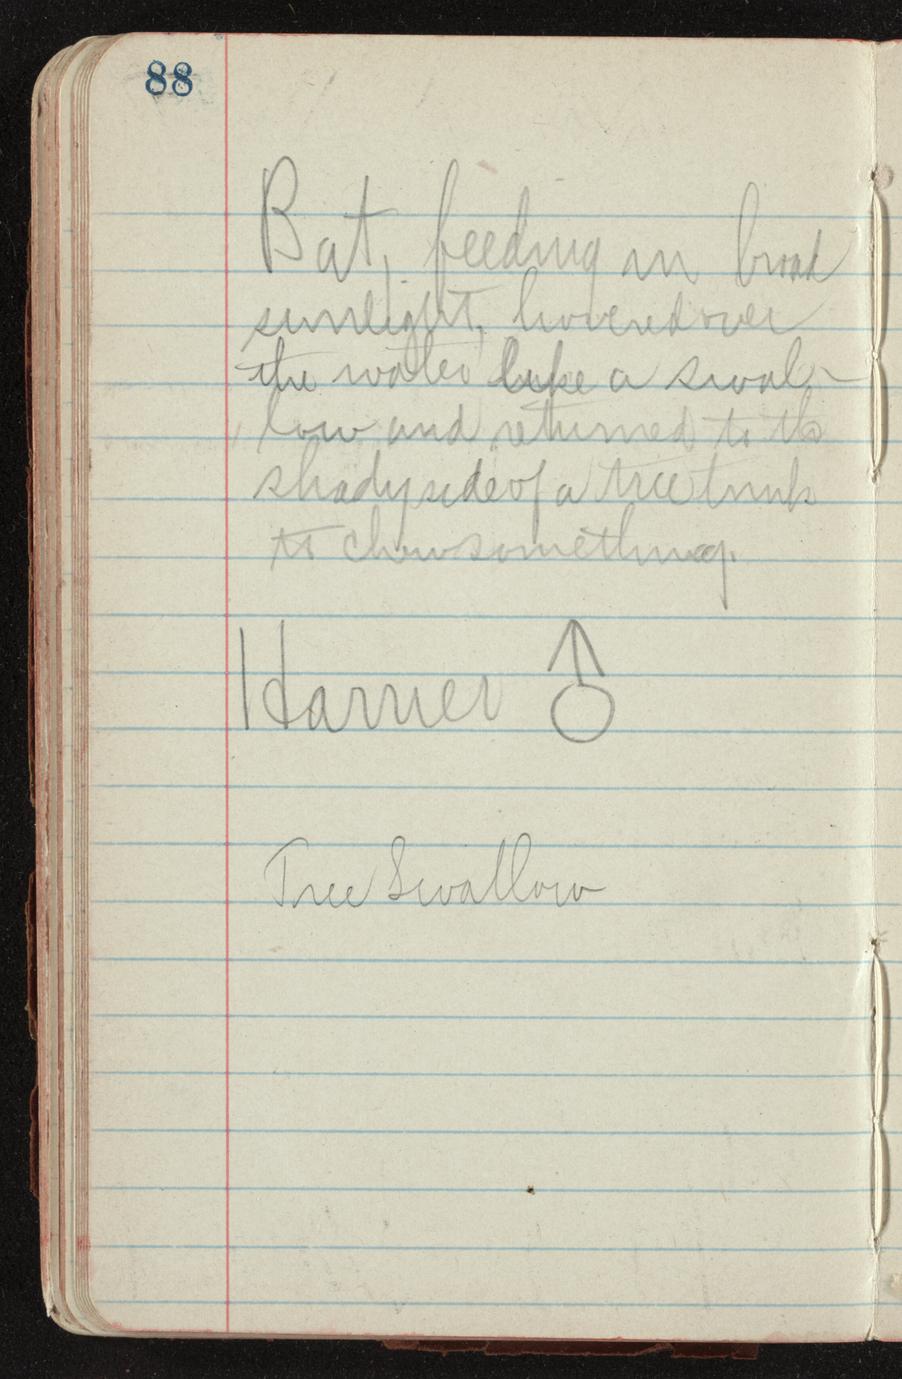 88
Bat, feeding in broad
sunlight, hovered over
the water like a swal-
low and returned to the
shady side of a tree trunk
to chew something.
Harrier ♂
Tree Swallow